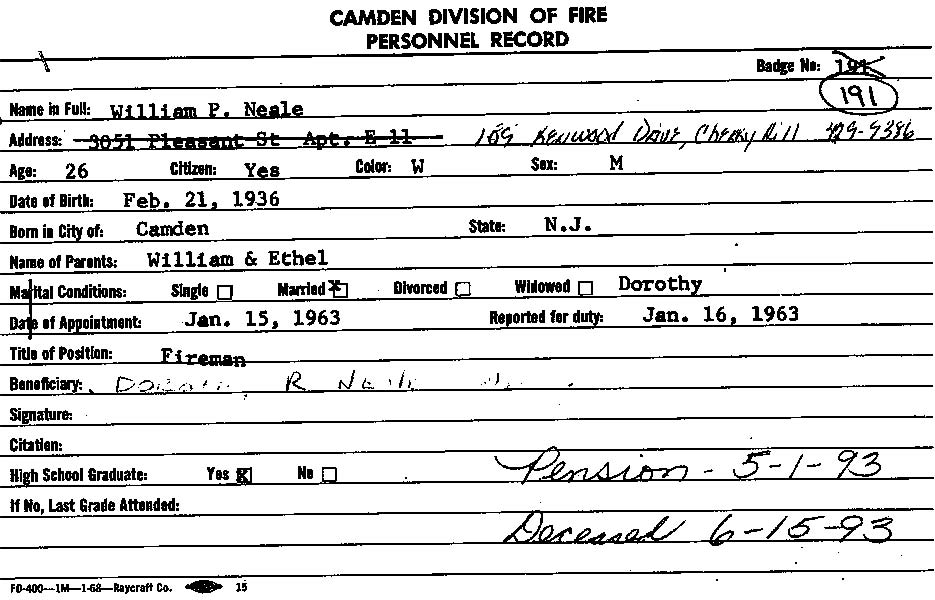 CAMDEN DIVISION OF FIRE
PERSONNEL RECORD
Badge No: 191
191
Name in Full: William P. Neale
Address: 3051 Pleasant St Apt. E-11 Kenwood Drive, Cherry Hill
Age: 26 Citizen: Yes Color: W Sex: M
Date of Birth: Feb. 21, 1936
Born in City of: Camden State: N.J.
Name of Parents: William & Ethel
Marital Conditions: Single Married X Divorced Widowed Dorothy
Date of Appointment: Jan. 15, 1963 Reported for duty: Jan. 16, 1963
Title of Position: Fireman
Beneficiary: R
Signature:
Citation:
High School Graduate: Yes X No Pension - 5-1-93
If No, Last Grade Attended:
Deceased 6-15-93
FD-400—1M—1-68—Raycraft Co. 15